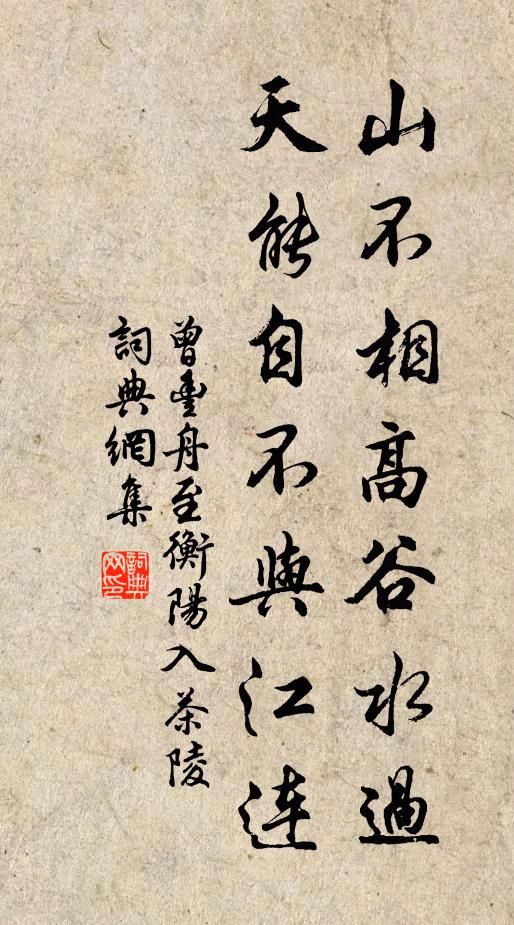 山不相高谷水過
天能自不與江連
曾豐舟至衡陽入茶陵
詞典網集
詞典網印